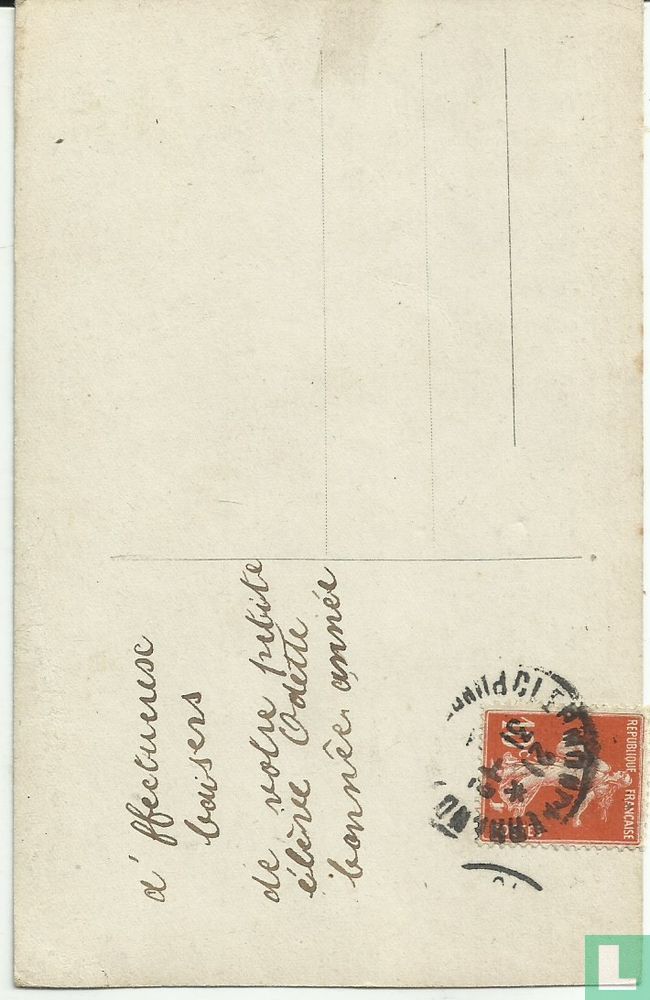 d'ffectuenx
baisers
de votre petite
élève Odette
bonnée année
REPUBLIQUE FRANÇAISE
L